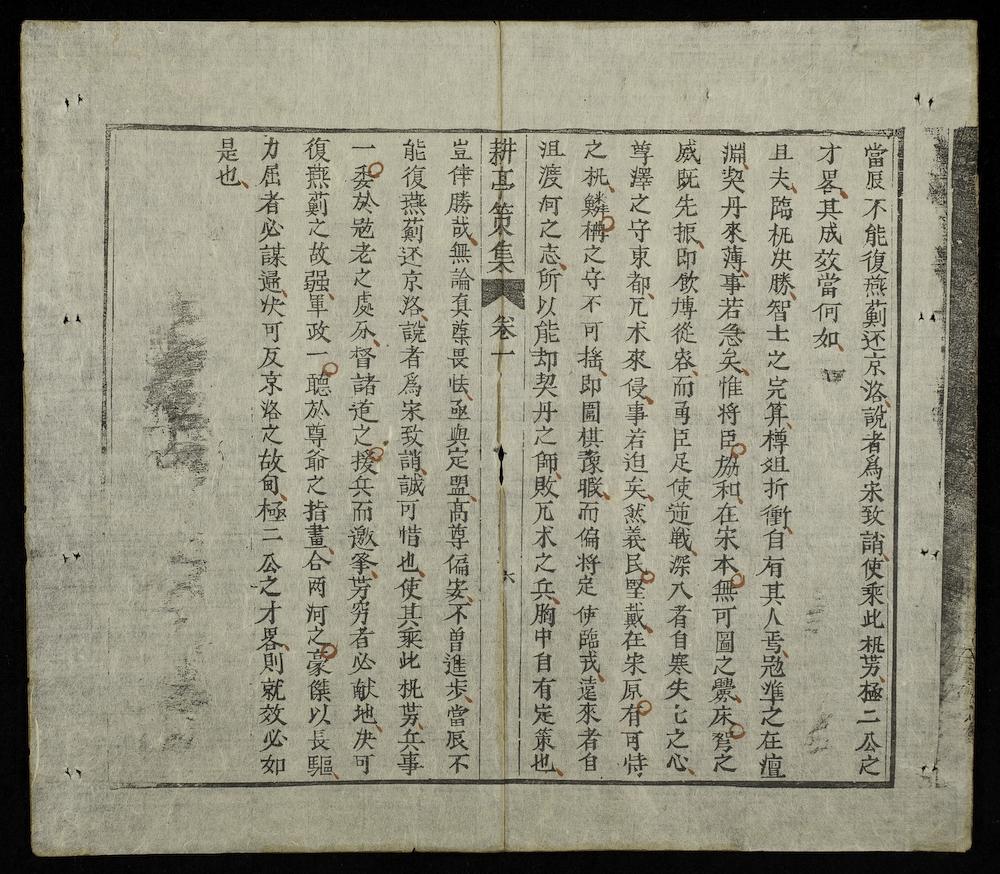 當辰不能復燕薊还京洛說者爲宋致誚使乘此机势極二公之
才畧其成效當何如
且夫臨机决勝智士之完算樽俎折衝自有其人焉寇準之在澶
淵契丹來薄事若急矣惟將臣協和在宋本無可圖之釁床弩之
威既先振即飲博從容而勇臣足使逆戰深入者自寒失匕之心
尊澤之守東都兀术來侵事若迫矣然義民堅戴在宋原有可恃
之机鱗構之守不可搖即圍棋豫暇而偏將定使臨戎遠來者自
沮渡河之志所以能却契丹之師敗兀术之兵胸中自有定策也
耕亭策集 卷一 六
豈倖勝哉無論真尊畏怯亟與定盟高尊偏安不曾進步當辰不
能復燕薊还京洛說者爲宋致誚誠可惜也使其乘此机势兵事
一委於寇老之處分督諸道之援兵而邀擊势穷者必献地决可
復燕薊之故强軍政一聽於尊爺之指畫合两河之豪傑以長驅
力屈者必謀遁决可反京洛之故甸極二公之才畧則就效必如
是也